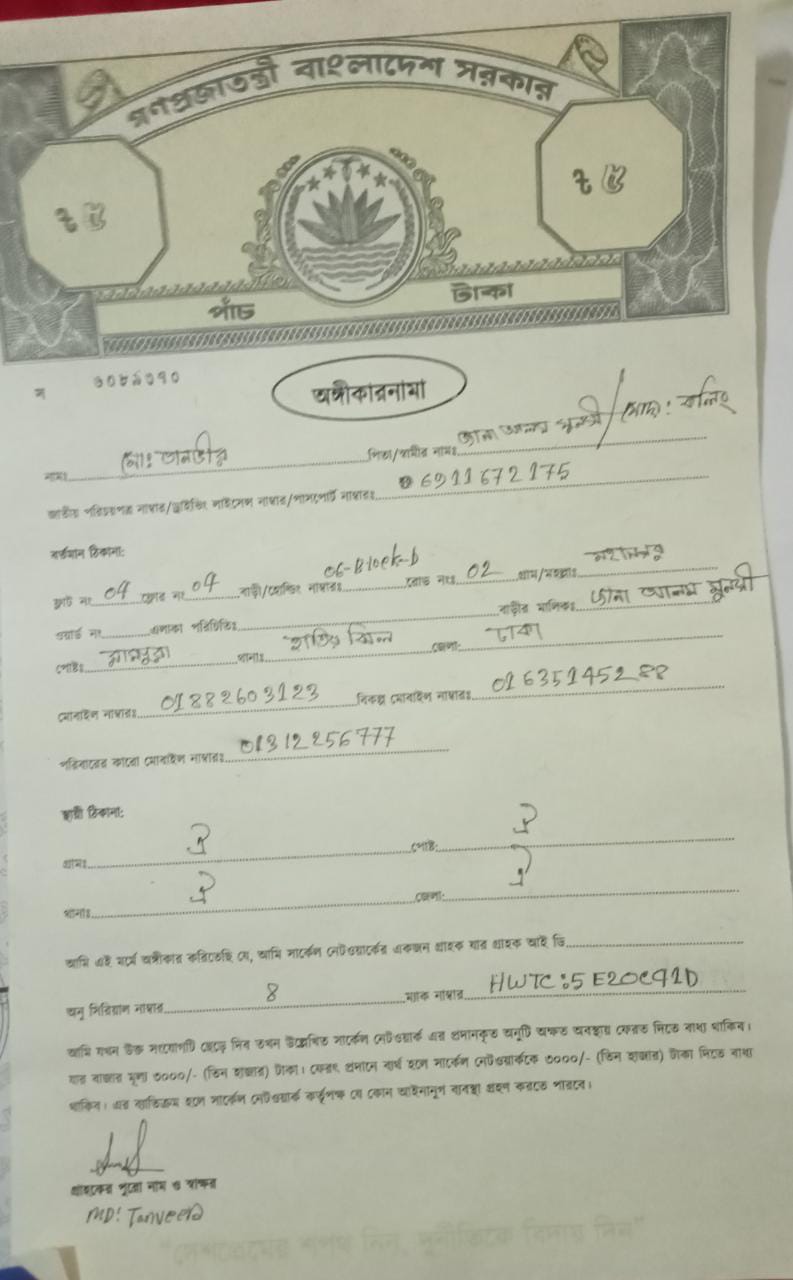 গণপ্রজাতন্ত্রী বাংলাদেশ সরকার
৳ ৫ ৳ ৫
পাঁচ টাকা
অঙ্গীকারনামা
নামঃ মোঃ তানভীর পিতা/স্বামীর নামঃ আলম মুন্সী
জাতীয় পরিচয়পত্র নাম্বার/ড্রাইভিং লাইসেন্স নাম্বার/পাসপোর্ট নাম্বারঃ 6911672175
বর্তমান ঠিকানা:
ফ্লাট নং 04 ফ্লোর নং 04 বাড়ী/হোল্ডিং নাম্বারঃ 06-Block-b রোড নংঃ 02 গ্রাম/মহল্লাঃ মহানগর
ওয়ার্ড নং এলাকা পরিচিতিঃ বাড়ীর মালিকঃ আলম মুন্সী
পোষ্টঃ রামপুরা থানাঃ হাতির ঝিল জেলা: ঢাকা
মোবাইল নাম্বারঃ 01882603123 বিকল্প মোবাইল নাম্বারঃ 01635145288
পরিবারের কারো মোবাইল নাম্বারঃ 01312256777
স্থায়ী ঠিকানা:
গ্রামঃ ঐ পোষ্ট: ঐ
থানাঃ ঐ জেলা: ঐ
আমি এই মর্মে অঙ্গীকার করিতেছি যে, আমি সার্কেল নেটওয়ার্কের একজন গ্রাহক যার গ্রাহক আই ডি
অনু সিরিয়াল নাম্বার 8 ম্যাক নাম্বার HWTC:5E20C91D
আমি যখন উক্ত সংযোগটি ছেড়ে দিব তখন উল্লেখিত সার্কেল নেটওয়ার্ক এর প্রদানকৃত অনুটি অক্ষত অবস্থায় ফেরত দিতে বাধ্য থাকিব।
যার বাজার মূল্য ৩০০০/- (তিন হাজার) টাকা। ফেরৎ প্রদানে ব্যর্থ হলে সার্কেল নেটওয়ার্ককে ৩০০০/- (তিন হাজার) টাকা দিতে বাধ্য
থাকিব। এর ব্যতিক্রম হলে সার্কেল নেটওয়ার্ক কর্তৃপক্ষ যে কোন আইনানুগ ব্যবস্থা গ্রহণ করতে পারবে।
গ্রাহকের পুরো নাম ও স্বাক্ষর
MD: Tanveer
"দেশপ্রেমের শপথ নিন, দুর্নীতিকে বিদায় দিন"